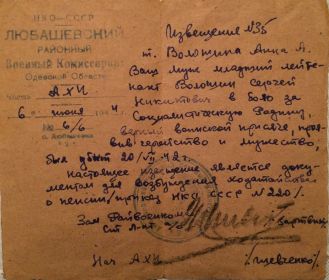 НКО-СССР
ЛЮБАШЕВСКИЙ
РАЙОННЫЙ
Военный Комиссариат
Одесской Области
Часть АХЧ
6 июня 4 г.
№ 6/6
Извещение №35
т. Волошина Анна А.
Ваш муж младший лейте-
нант Волошин Сергей
Никитович в бою за
Социалистическую Родину,
верный воинской присяге, проя-
вив геройство и мужество,
был убит 20/VII 42 г.
Настоящее извещение является доку-
ментом для возбуждения ходатайства
о пенсии приказ НКО СССР № 220/.
Зам Райвоенкома
Ст. Л-нт
Нач АХЧ /Шевченко/